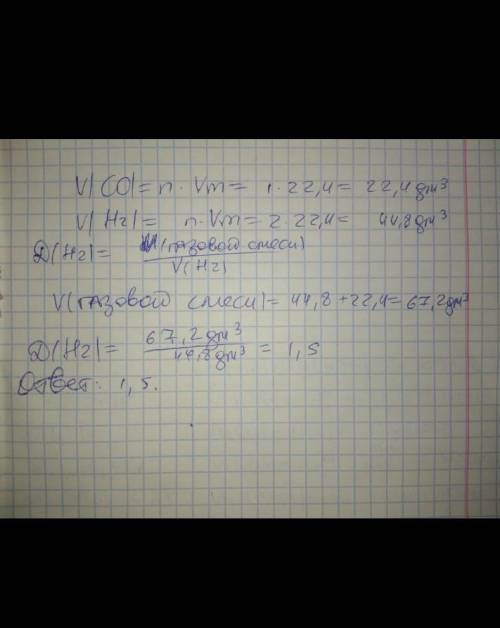 V(CO)= n · Vm = 1·22,4= 22,4 дм³
V(H2)= n·Vm= 2·22,4= 44,8 дм³
D(H2)= V(газовой смеси)
V(H2)
V(газовой смеси)= 44,8+22,4= 67,2дм³
D(H2)= 67,2 дм³
44,8 дм³ = 1,5
Ответ: 1,5.